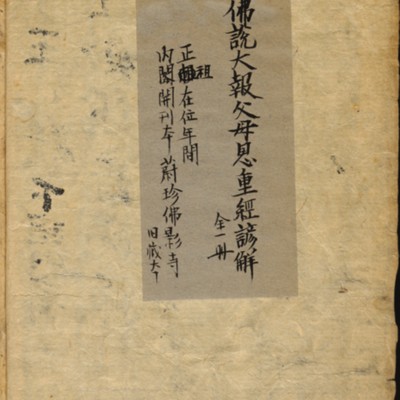 佛説大報父母恩重經諺解
全一冊
正祖在位年間
内閣開刊本蔚珍佛影寺
旧蔵本